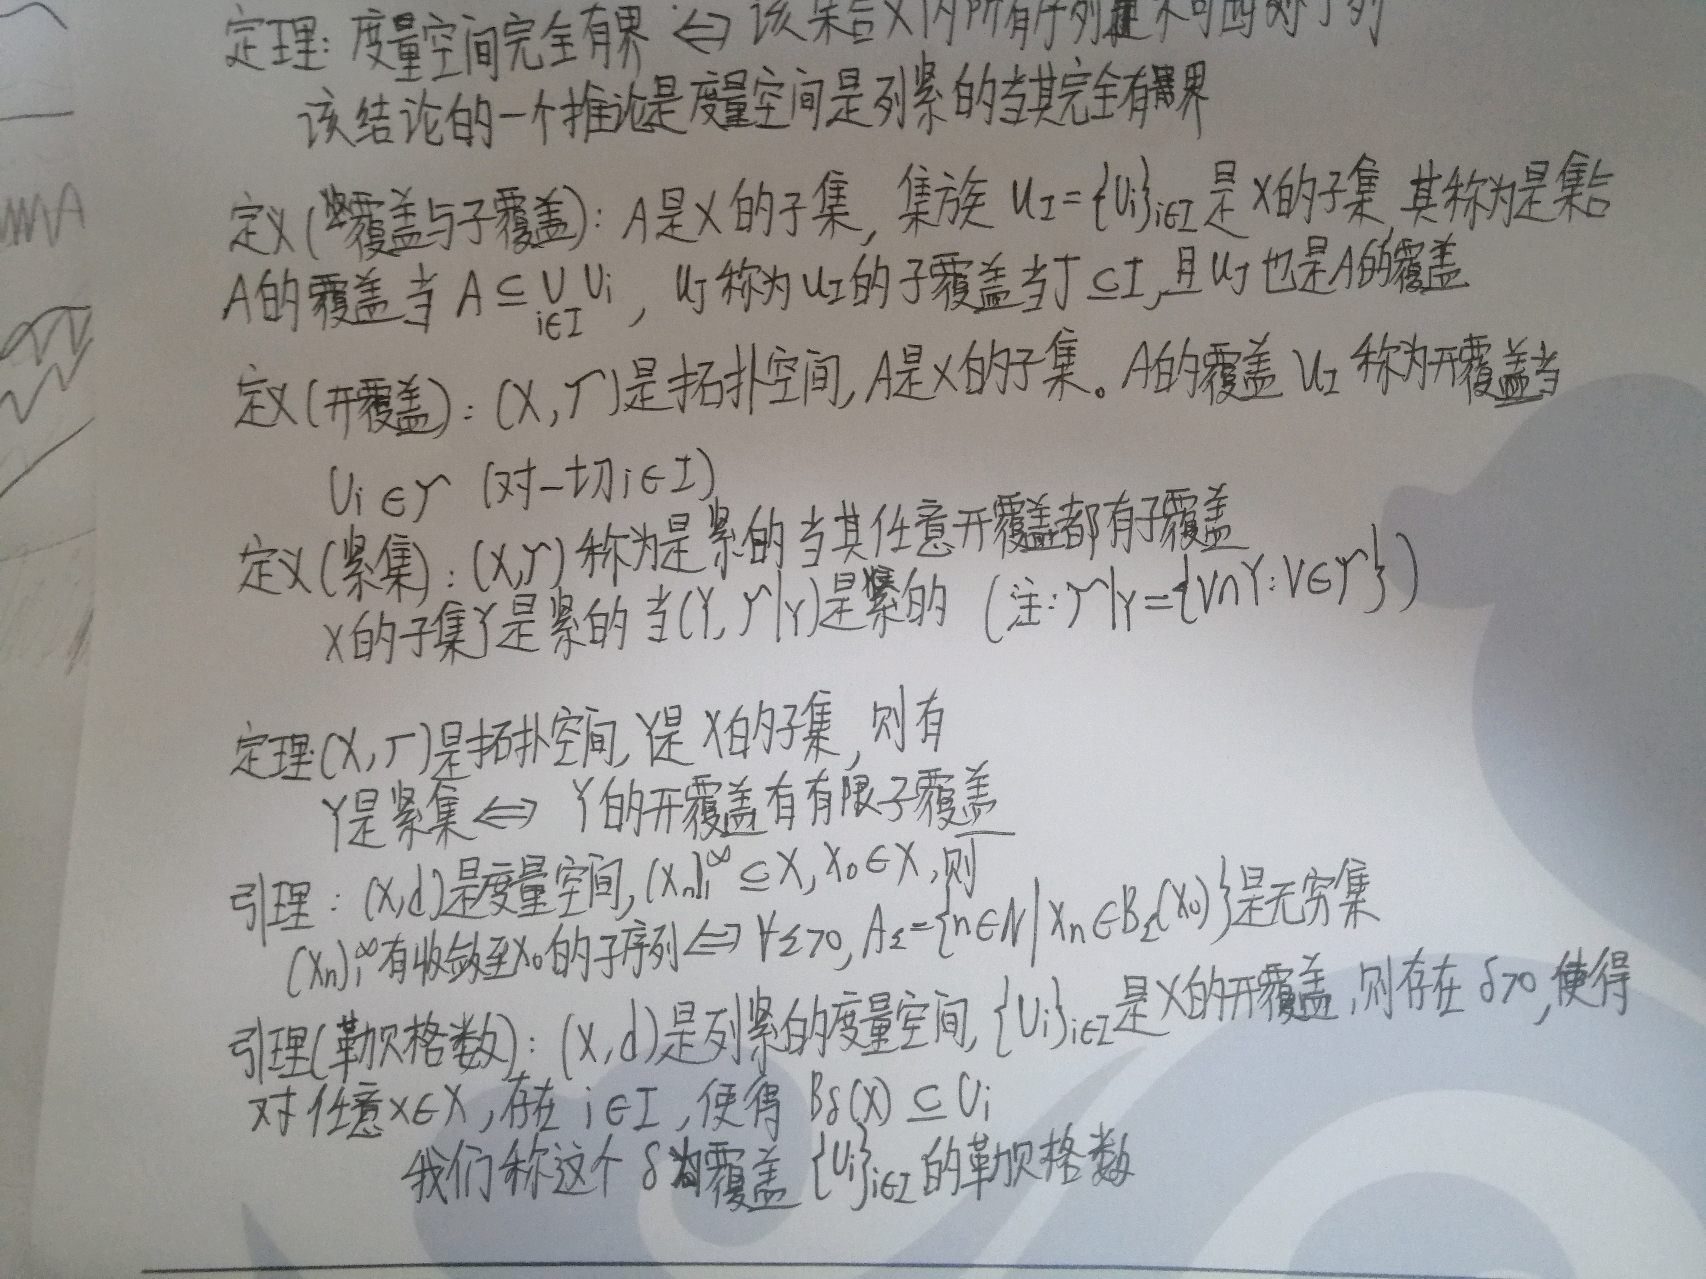 定理：度量空间完全有界 ⇔ 该集合X内所有序列都有柯西列子列
该结论的一个推论是度量空间是列紧的当其完全有界
定义(覆盖与子覆盖)：A是X的子集，集族 U_I={U_i}_{i∈I}是X的子集，其称为是集合
A的覆盖当 A⊆∪_{i∈I} U_i，U_J称为U_I的子覆盖当J⊆I，且U_J也是A的覆盖
定义(开覆盖)：(X,𝒯)是拓扑空间，A是X的子集。A的覆盖 U_I 称为开覆盖当
U_i∈𝒯 (对一切i∈I)
定义(紧集)：(X,𝒯)称为是紧的当其任意开覆盖都有子覆盖
X的子集Y是紧的当(Y,𝒯|Y)是紧的 (注：𝒯|Y={V∩Y：V∈𝒯})
定理：(X,𝒯)是拓扑空间，Y是X的子集，则有
Y是紧集 ⇔ Y的开覆盖有有限子覆盖
引理：(X,d)是度量空间，(x_n)_1^∞⊆X，x_0∈X，则
(x_n)_1^∞有收敛至x_0的子序列⇔∀ε>0，A_ε={n∈N|x_n∈B_ε(x_0)}是无穷集
引理(勒贝格数)：(X,d)是列紧的度量空间，{U_i}_{i∈I}是X的开覆盖，则存在δ>0，使得
对任意x∈X，存在i∈I，使得 B_δ(x)⊆U_i
我们称这个δ为覆盖{U_i}_{i∈I}的勒贝格数